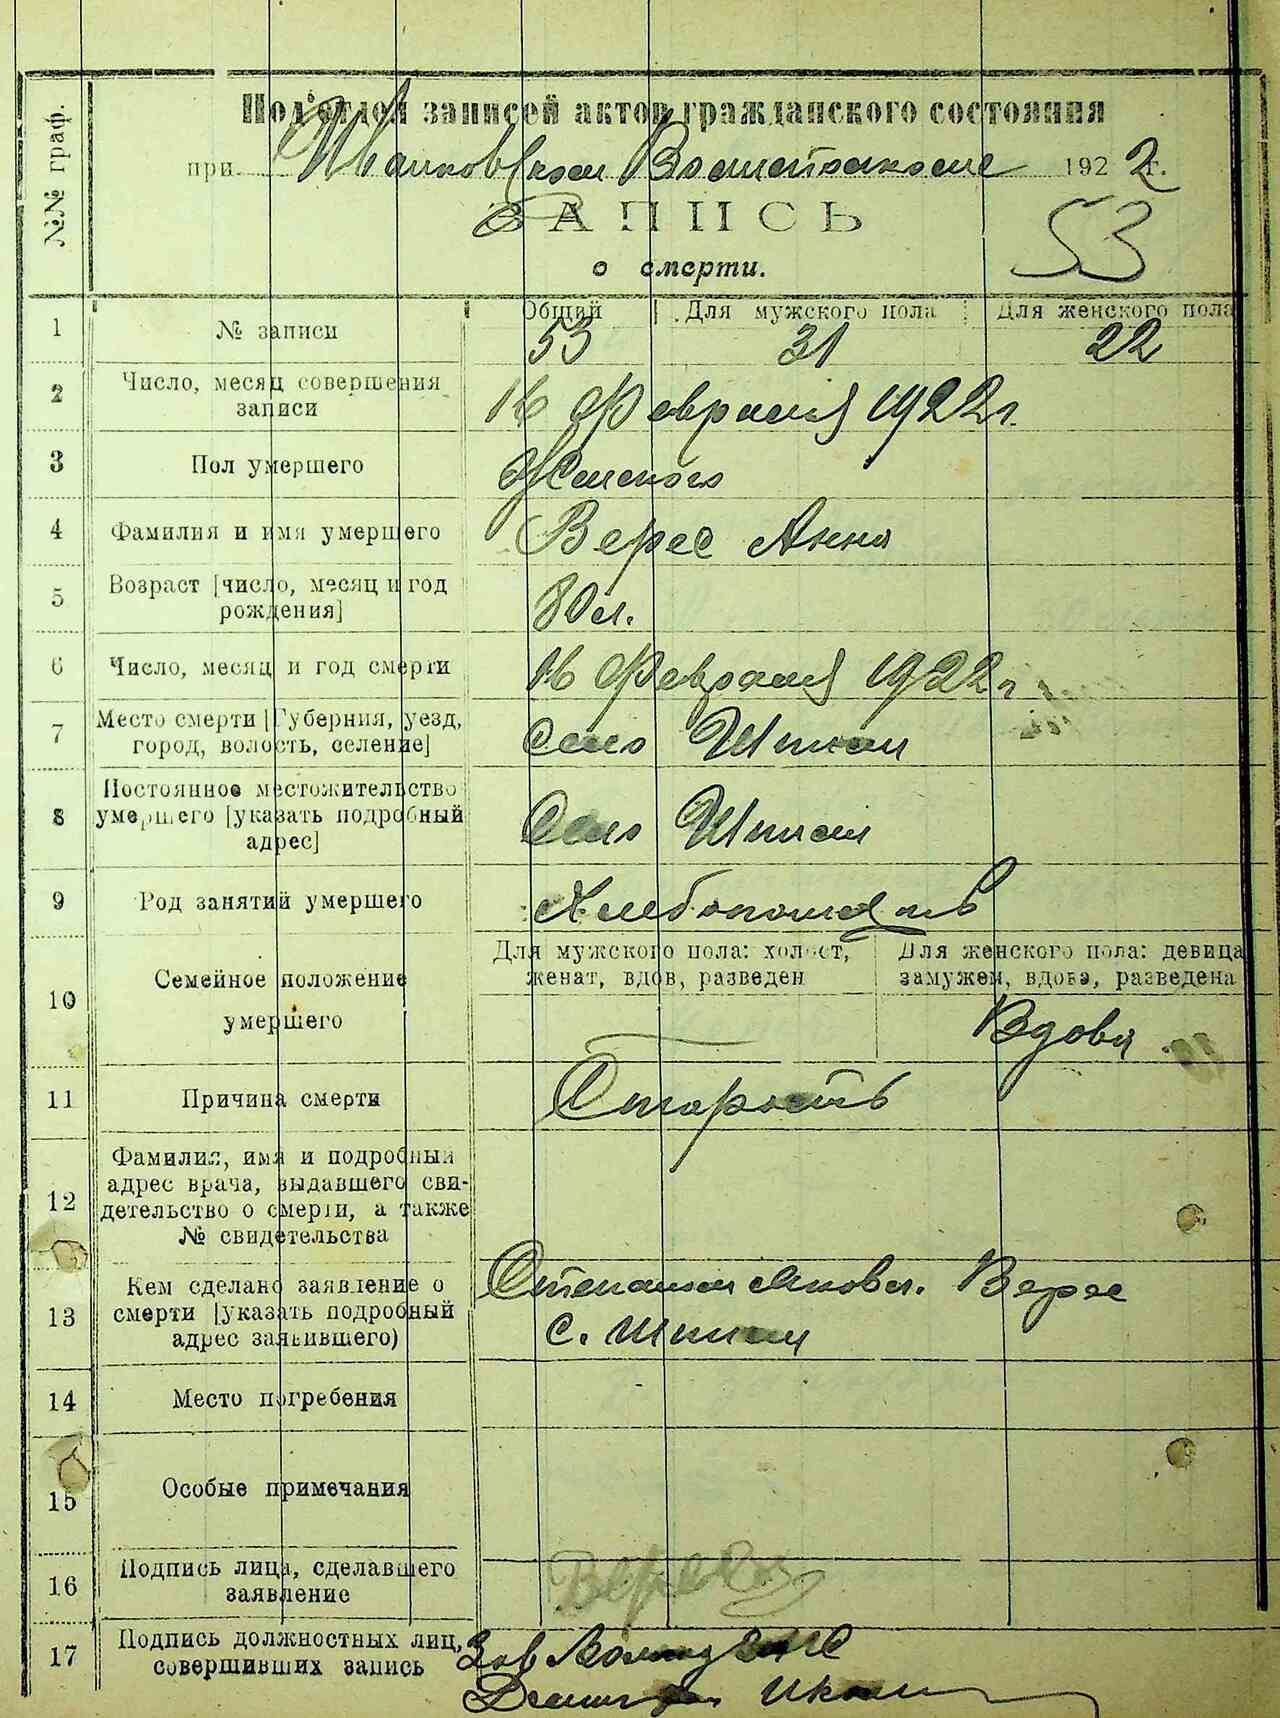 №№ граф.
Подотдел записей актов гражданского состояния
при Иванковском Волисполкоме 1922 г.
ЗАПИСЬ
о смерти.
53
1 № записи
Общий Для мужского пола Для женского пола
53 31 22
2 Число, месяц совершения
записи
16 Февраля 1922 г.
3 Пол умершего
Женского
4 Фамилия и имя умершего
Верес Анна
5 Возраст [число, месяц и год
рождения]
80 л.
6 Число, месяц и год смерти
16 Февраля 1922 г.
7 Место смерти [Губерния, уезд,
город, волость, селение]
Село
8 Постоянное местожительство
умершего [указать подробный
адрес]
Село
9 Род занятий умершего
Хлебопашець
10 Семейное положение
умершего
Для мужского пола: холост, Для женского пола: девица
женат, вдов, разведен замужем, вдова, разведена
Вдова
11 Причина смерти
Старость
12 Фамилия, имя и подробный
адрес врача, выдавшего сви-
детельство о смерти, а также
№ свидетельства
13 Кем сделано заявление о
смерти [указать подробный
адрес заявившего)
Степаном Яковл. Верес
с.
14 Место погребения
15 Особые примечания
16 Подпись лица, сделавшего
заявление
17 Подпись должностных лиц,
совершивших запись
Зав